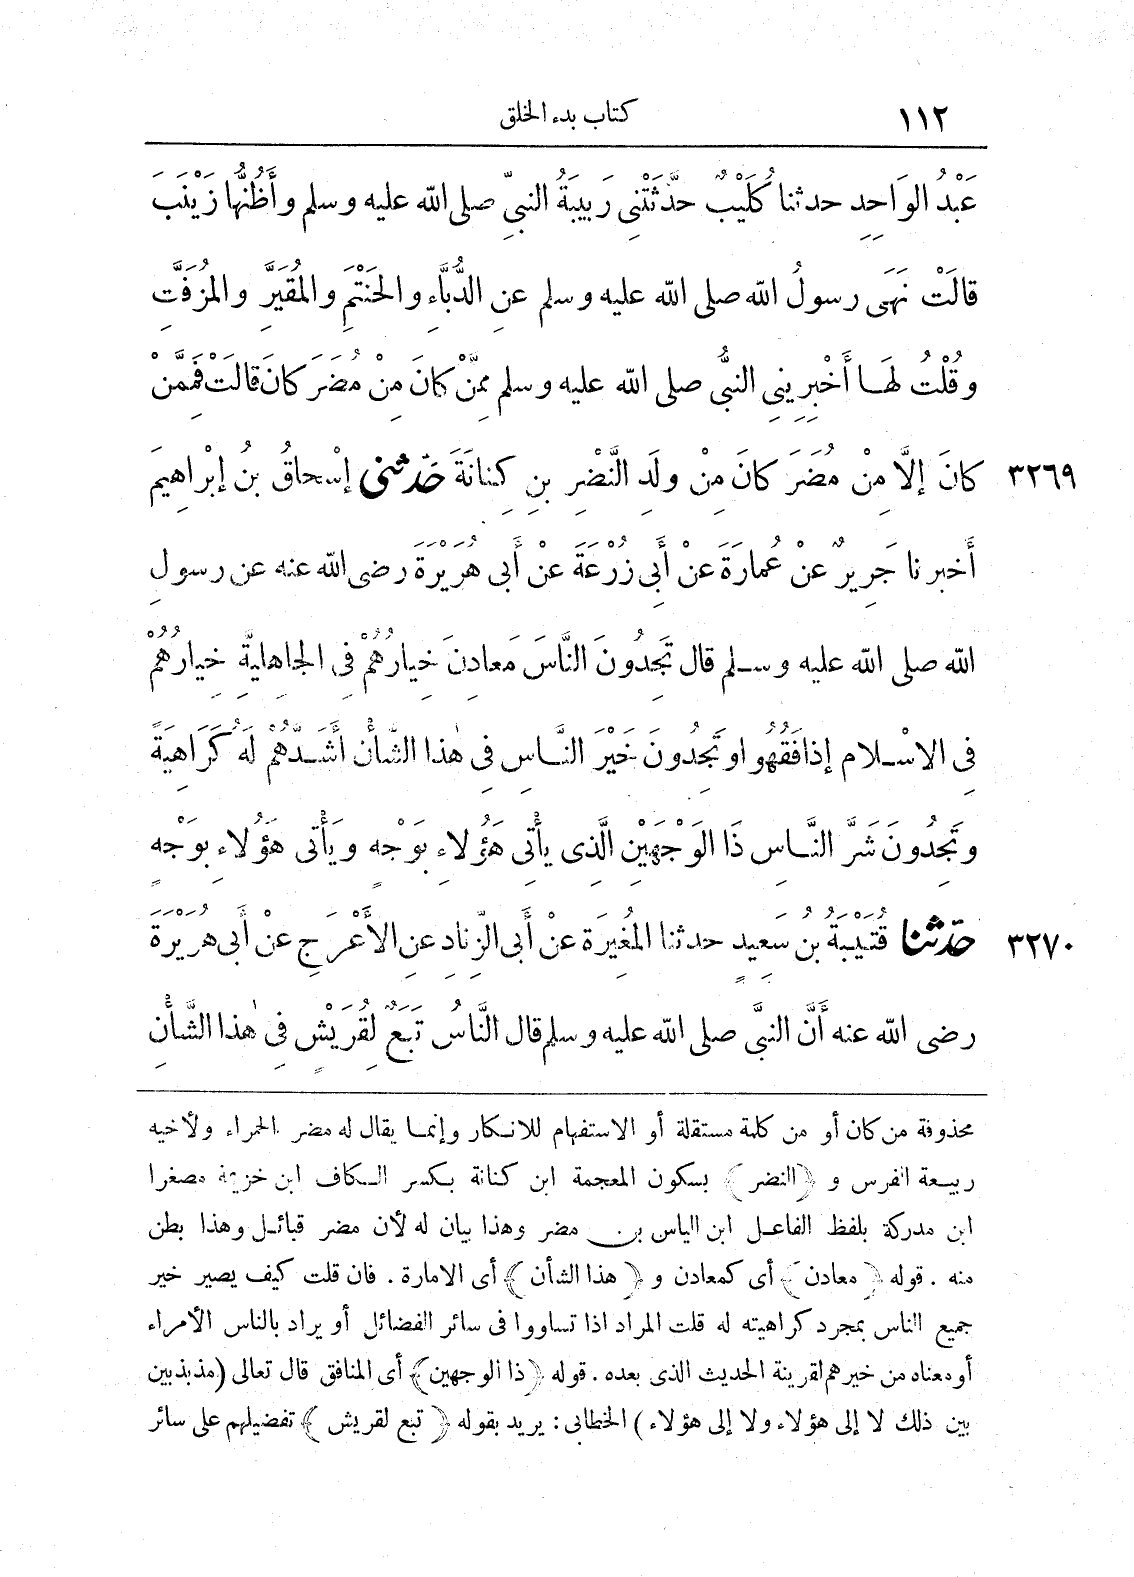 ١١٢ كتاب بدء الخلق
عَبْدُ الوَاحِدِ حدثنا كُلَيْبٌ حدَّثَتْنِى رَبِيبَةُ النبىِّ صلى الله عليه وسلم وأَظُنُّها زَيْنَبَ
قالَتْ نَهَى رسولُ الله صلى الله عليه وسلم عنِ الدُّبَّاءِ والحَنْتَمِ والمُقَيَّرِ والمُزَفَّتِ
وقُلْتُ لهَا أَخْبِرِينِى النبىُّ صلى الله عليه وسلم مِمَّنْ كانَ مِنْ مُضَرَ كانَ قالَتْ فَمِمَّنْ
٣٢٦٩ كانَ إلَّا مِنْ مُضَرَ كانَ مِنْ ولَدِ النَّضْرِ بنِ كِنانَةَ حَدّثنى إسْحاقُ بنُ إبْراهِيمَ
أَخبرنا جَرِيرٌ عنْ عُمارَةَ عنْ أَبِى زُرْعَةَ عنْ أَبى هُرَيْرَةَ رضى الله عنه عن رسولِ
الله صلى الله عليه وسلم قال تَجِدُونَ النَّاسَ مَعادِنَ خِيارُهُمْ فِى الجاهِلِيَّةِ خِيارُهُمْ
فِى الاسْلام إذا فَقُهُوا وتَجِدُونَ خَيْرَ النَّاسِ فِى هٰذا الشَّأْنِ أَشَدَّهُمْ لَهُ كَرَاهِيَةً
وتَجِدُونَ شَرَّ النَّاسِ ذَا الوَجْهَيْنِ الَّذِى يأْتِى هَؤُلاءِ بوَجْهٍ ويَأْتِى هَؤُلاءِ بوَجْهٍ
٣٢٧٠ حَدّثنا قُتَيْبَةُ بن سَعِيدٍ حدثنا المُغِيرَةُ عنْ أَبِى الزِّنادِ عنِ الأَعْرَجِ عنْ أَبى هُرَيْرَةَ
رضى الله عنه أَنَّ النبىَّ صلى الله عليه وسلم قال النَّاسُ تَبَعٌ لِقُرَيْشٍ فِى هٰذا الشَّأْنِ
محذوفة من كان أو من كلمة مستقلة أو الاستفهام للانكار وإنما يقال له مضر الحمراء ولأخيه
ربيعة الفرس و ﴿النضر﴾ بسكون المعجمة ابن كنانة بكسر الكاف ابن خزيمة مصغرا
ابن مدركة بلفظ الفاعل ابن الياس بن مضر وهذا بيان له لأن مضر قبائل وهذا بطن
منه . قوله ﴿معادن﴾ أى كمعادن و ﴿هذا الشأن﴾ أى الامارة . فان قلت كيف يصير خير
جميع الناس بمجرد كراهيته له قلت المراد اذا تساووا فى سائر الفضائل أو يراد بالناس الأمراء
أو معناه من خيرهم لقرينة الحديث الذى بعده . قوله ﴿ذا الوجهين﴾ أى المنافق قال تعالى (مذبذبين
بين ذلك لا إلى هؤلاء ولا إلى هؤلاء) الخطابى : يريد بقوله ﴿تبع لقريش﴾ تفضيلهم على سائر